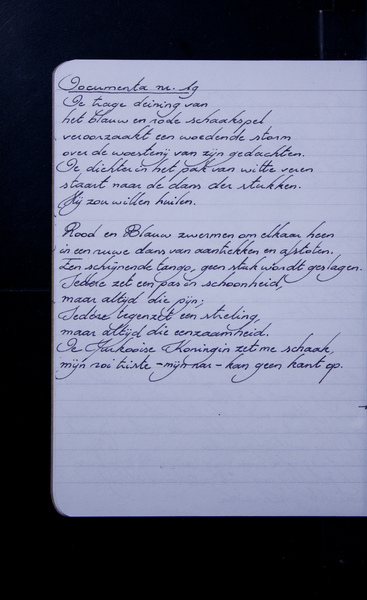 Documenta nr. 19
De trage deining van
het blauw en rode schaakspel
veroorzaakt een woedende storm
over de woestenij van zijn gedachten.
De dichter in het pak van witte veren
staart naar de dans der stukken.
Hij zou willen huilen.
Rood en Blauw zwermen om elkaar heen
in een ruwe dans van aantrekken en afstoten.
Een schrijnende tango, geen stuk wordt geslagen.
Iedere zet een pas in schoonheid,
maar altijd die pijn;
Iedere tegenzet een streling,
maar altijd die eenzaamheid.
De Turkooise Koningin zet me schaak,
mijn roi triste - mijn nar - kan geen kant op.